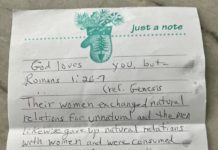 just a note
God loves you, but—
Romans 1:26-7
(ref. Genesis
Their women exchanged natural
relations for unnatural and the men
likewise gave up natural relations
with women and were consumed